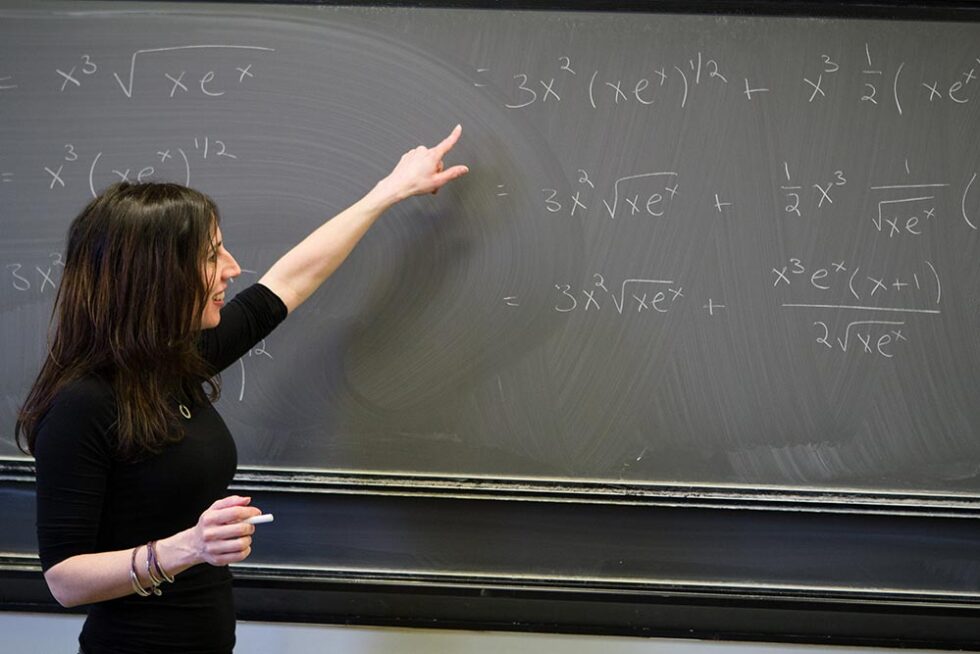 = x³ √(xeˣ)
= x³ (xeˣ)^1/2
3x²
)^1/2
= 3x² (xeˣ)^1/2 + x³ 1/2 ( xeˣ
= 3x² √(xeˣ) + 1/2 x³ 1/√(xeˣ) (
= 3x² √(xeˣ) + x³eˣ(x+1)/2√(xeˣ)